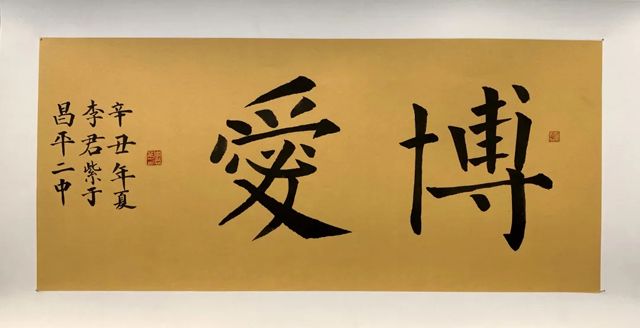 博愛
辛丑年夏
李君紫于
昌平二中